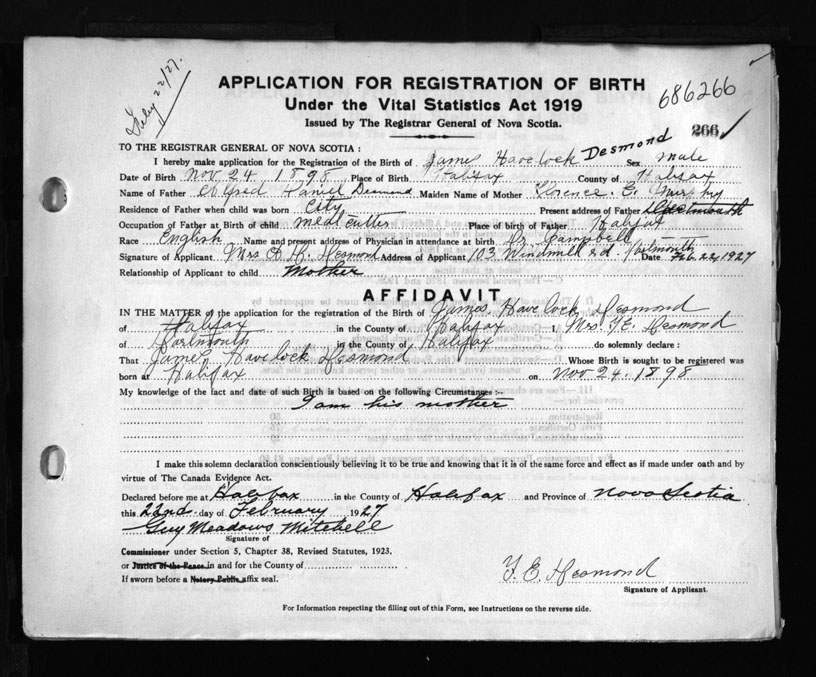 Feby 22/27.
APPLICATION FOR REGISTRATION OF BIRTH
686266
Under the Vital Statistics Act 1919
Issued by The Registrar General of Nova Scotia.
266
TO THE REGISTRAR GENERAL OF NOVA SCOTIA:
I hereby make application for the Registration of the Birth of James Havelock Desmond Sex Male
Date of Birth Nov 24 1898 Place of Birth Halifax County of Halifax
Name of Father Daniel Desmond Maiden Name of Mother E.
Residence of Father when child was born City Present address of Father Dartmouth
Occupation of Father at Birth of child meat cutter Place of birth of Father Halifax
Race English Name and present address of Physician in attendance at birth Dr Campbell
Signature of Applicant Mrs Desmond Address of Applicant 103 Windmill rd. Dartmouth Date Feb 22, 1927
Relationship of Applicant to child Mother
AFFIDAVIT
IN THE MATTER of the application for the registration of the Birth of James Havelock Desmond
of Halifax in the County of Halifax I, Mrs. F. E. Desmond
of Dartmouth in the County of Halifax do solemnly declare:
That James Havelock Desmond Whose Birth is sought to be registered was
born at Halifax on Nov 24. 1898
My knowledge of the fact and date of such Birth is based on the following Circumstances:-
I am his mother
I make this solemn declaration conscientiously believing it to be true and knowing that it is of the same force and effect as if made under oath and by
virtue of The Canada Evidence Act.
Declared before me at Halifax in the County of Halifax and Province of Nova Scotia
this 22nd day of February 1927
Guy Meadows Mitchell
Signature of
Commissioner under Section 5, Chapter 38, Revised Statutes, 1923,
or Justice of the Peace in and for the County of
If sworn before a Notary Public affix seal.
F. E. Desmond
Signature of Applicant.
For Information respecting the filling out of this Form, see Instructions on the reverse side.